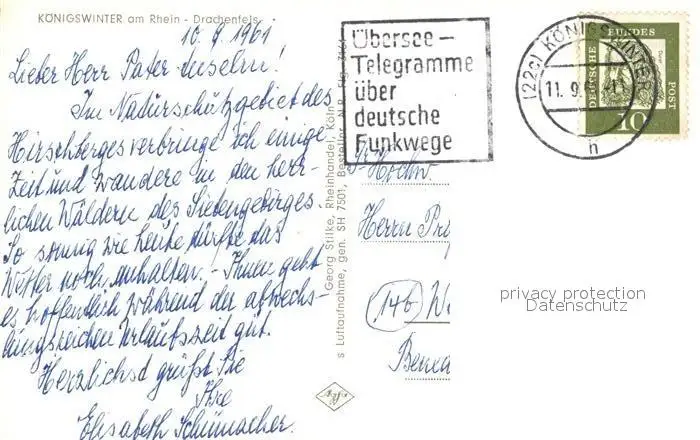 KÖNIGSWINTER am Rhein - Drachenfels
10. 9. 1961
Lieber Herr Pater Anselm!
Im Naturschutzgebiet des
Hirschberges verbringe ich einige
Zeit und wandere in den herr-
lichen Wäldern des Siebengebirges.
So sonnig wie heute dürfte das
Wetter noch anhalten. - Ihnen geht
es hoffentlich während der abwechs-
lungsreichen Urlaubszeit gut.
Herzlichst grüßt Sie
Ihre
Elisabeth Schumacher.
s Luftaufnahme, gen. SH 7501, Besteller N.R.
Georg Stilke, Rheinhandel, Köln
Übersee -
Telegramme
über
deutsche
Funkwege
(22c) KÖNIGSWINTER
11. 9.
h
DEUTSCHE BUNDES POST
10
Hochw.
Herrn
(14b)
privacy protection
Datenschutz